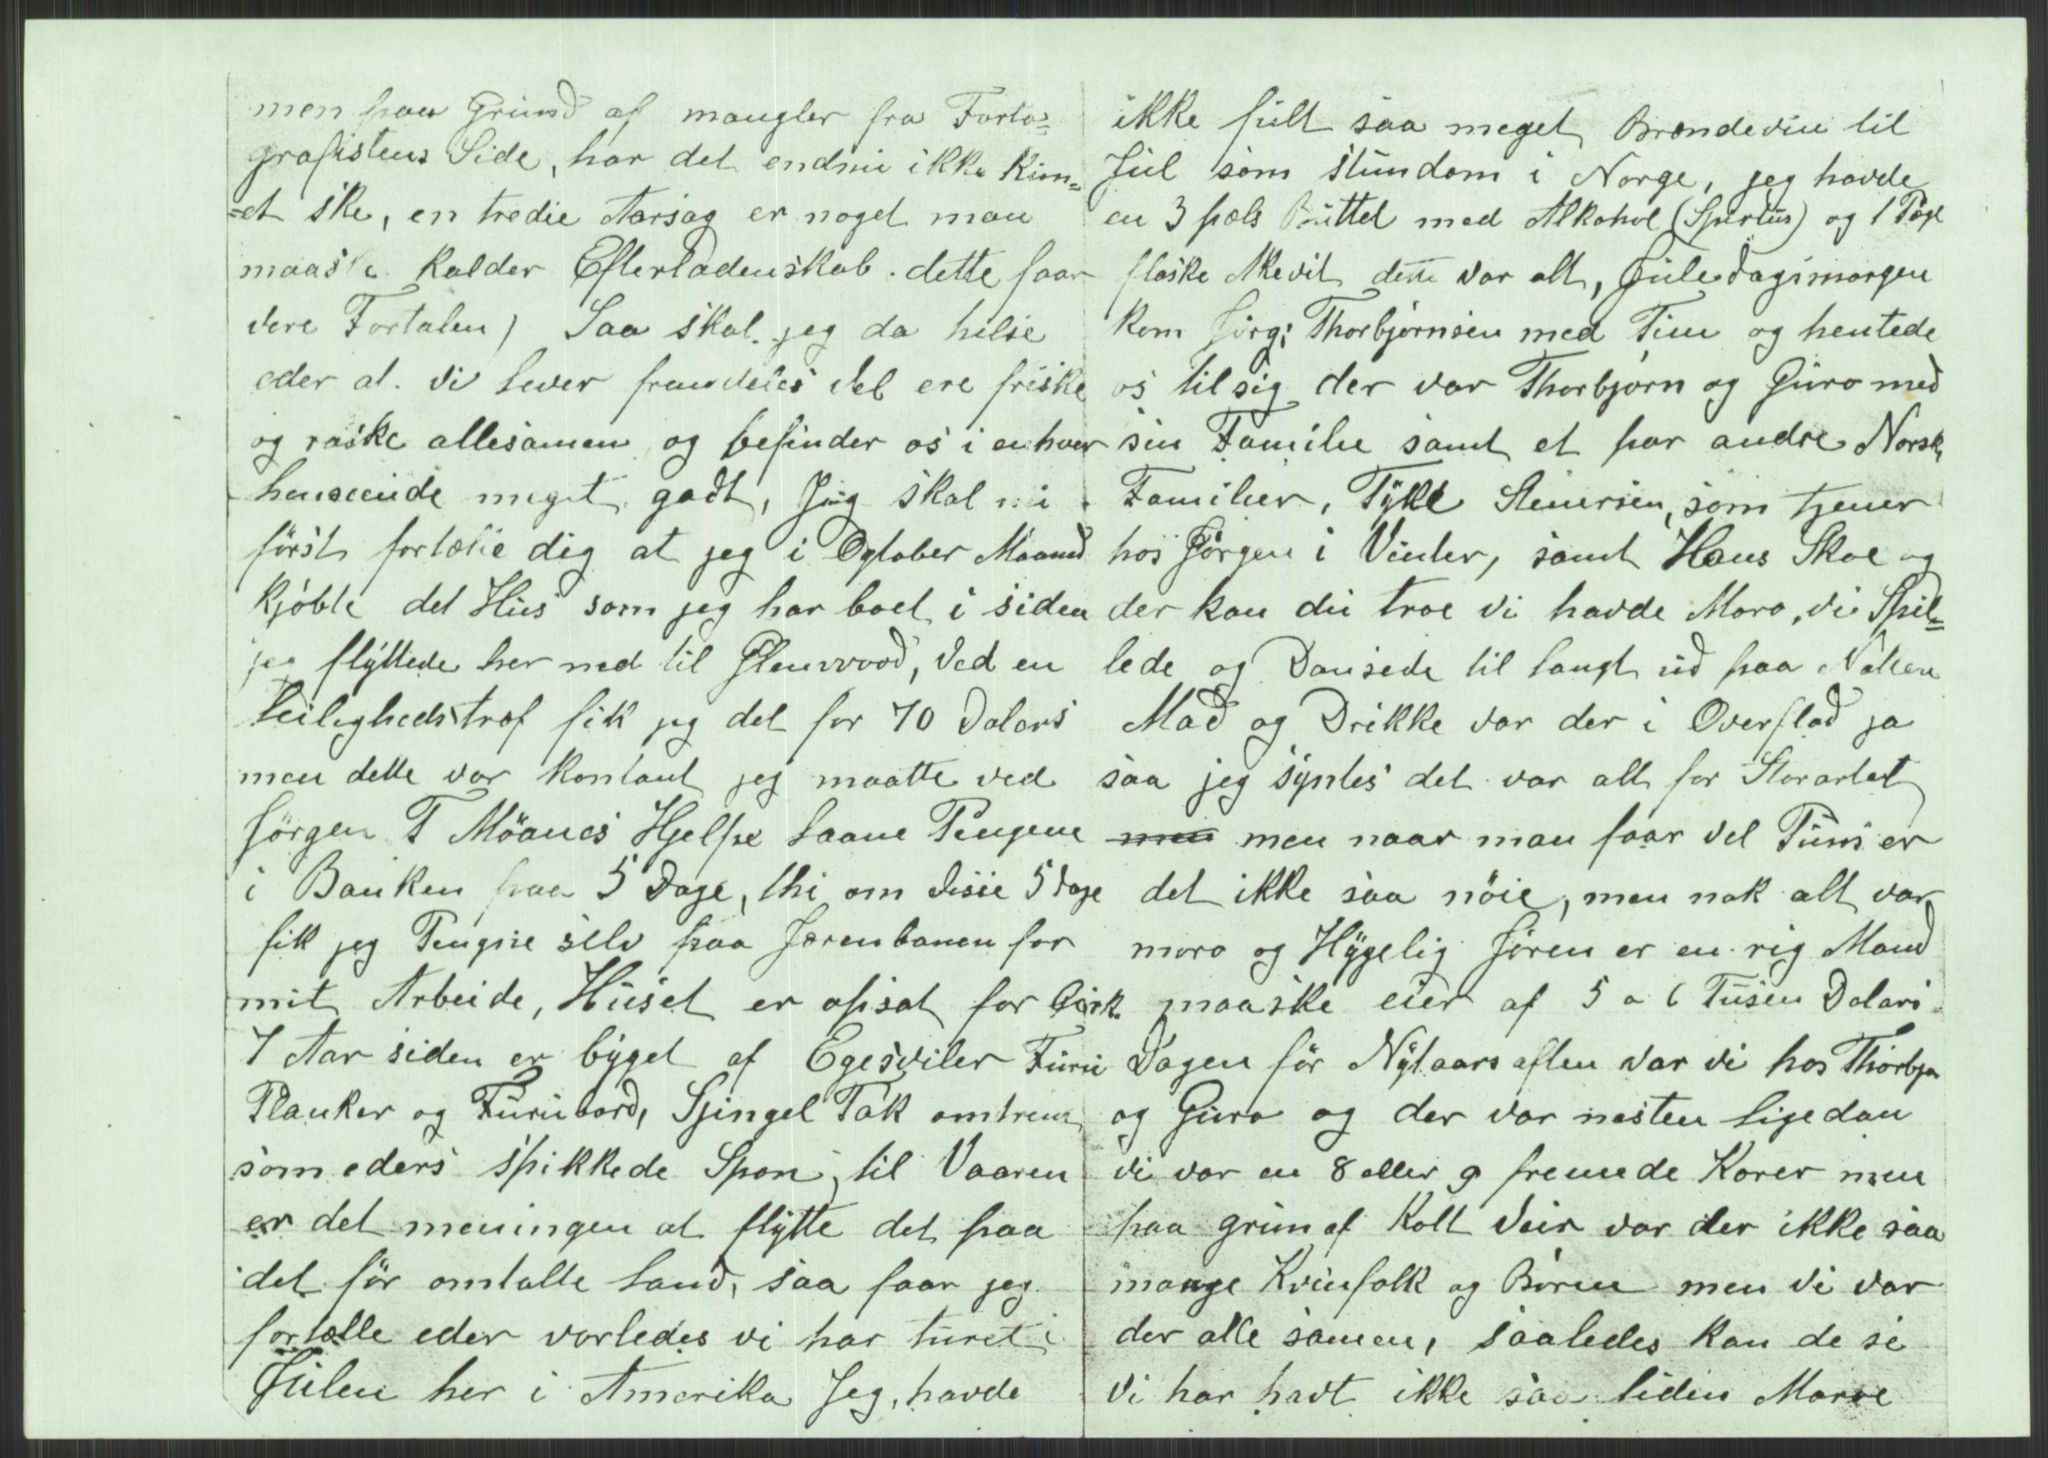 men paa Grund af mangler fra Forto=
grafistens Side, har det endnu ikke Kun=
=et ske, en tredie Aarsag er noget man
maaske kalder Efterladenskab. dette faar
være Fortalen) Saa skal jeg da hilse
eder at vi Lever fremdeles vel ere friske
og raske allesamen og befinder os i enhver
henseende meget godt, Jeg skal nu
först fortælle dig at jeg i Ogtober Maaned
kjöbte det Hus som jeg har boet i siden
jeg flyttede her ned til Glenwood, Ved en
Leilighedstræf fik jeg det for 70 Dolars
men dette var kontant jeg maatte ved
Jörgen T Möanes Hjelpe Laane Pengene
i Banken paa 5 Dage, thi om disse 5 dage
fik jeg Pengne selv paa Jærenbanen for
mit Arbeide, Huset er opsat for Cirk.
7 Aar siden er byget af Egesviler Furu
Planker og Furubord, Sjingel Tak omtrent
som eders spikkede Spon, til Vaaren
er det meningen at flytte det paa
det för omtalte Land, saa faar jeg
fortælle eder vorledes vi har turet i
Julen her i Amerika Jeg, havde
ikke fult saa meget Brændeviin til
Jul som stundom i Norge, jeg havde
en 3 pæls Buttel med Alkohol (Spirtus) og 1 Pægl
flaske Akevit dette var alt, Juledagsmorgen
kom Jörg; Thorbjörnsen med Tim og hentede
os til sig der var Thorbjörn og Guro med
sin Familie samt et par andre Norsk,
Familier, Tykle Steinersen, som tjener
hos Jörgen i Vinter, samt Hans Skoe og
der kan du troe vi havde Moro, vi Spil=
lede og Dansede til langt ud paa Natten
Mad og Drikke var der i Overflød ja
saa jeg syntes det var alt for Storartet
men men naar man faar vel Tuns er
det ikke saa nöie, men nok alt var
moro og Hygelig Jören er en rig Mand
maaske eier af 5 a 6 Tusen Dolars
Dagen för Nytaarsaften var vi hos Thorbjø
og Guro og der var nesten Ligedan
vi var en 8 eller 9 fremede Karer men
paa grun af Kolt Veir var der ikke saa
mange Kvinfolk og Börn men vi var
der alle samen, saaledes kan de se
vi har havt ikke saa liden Moroe